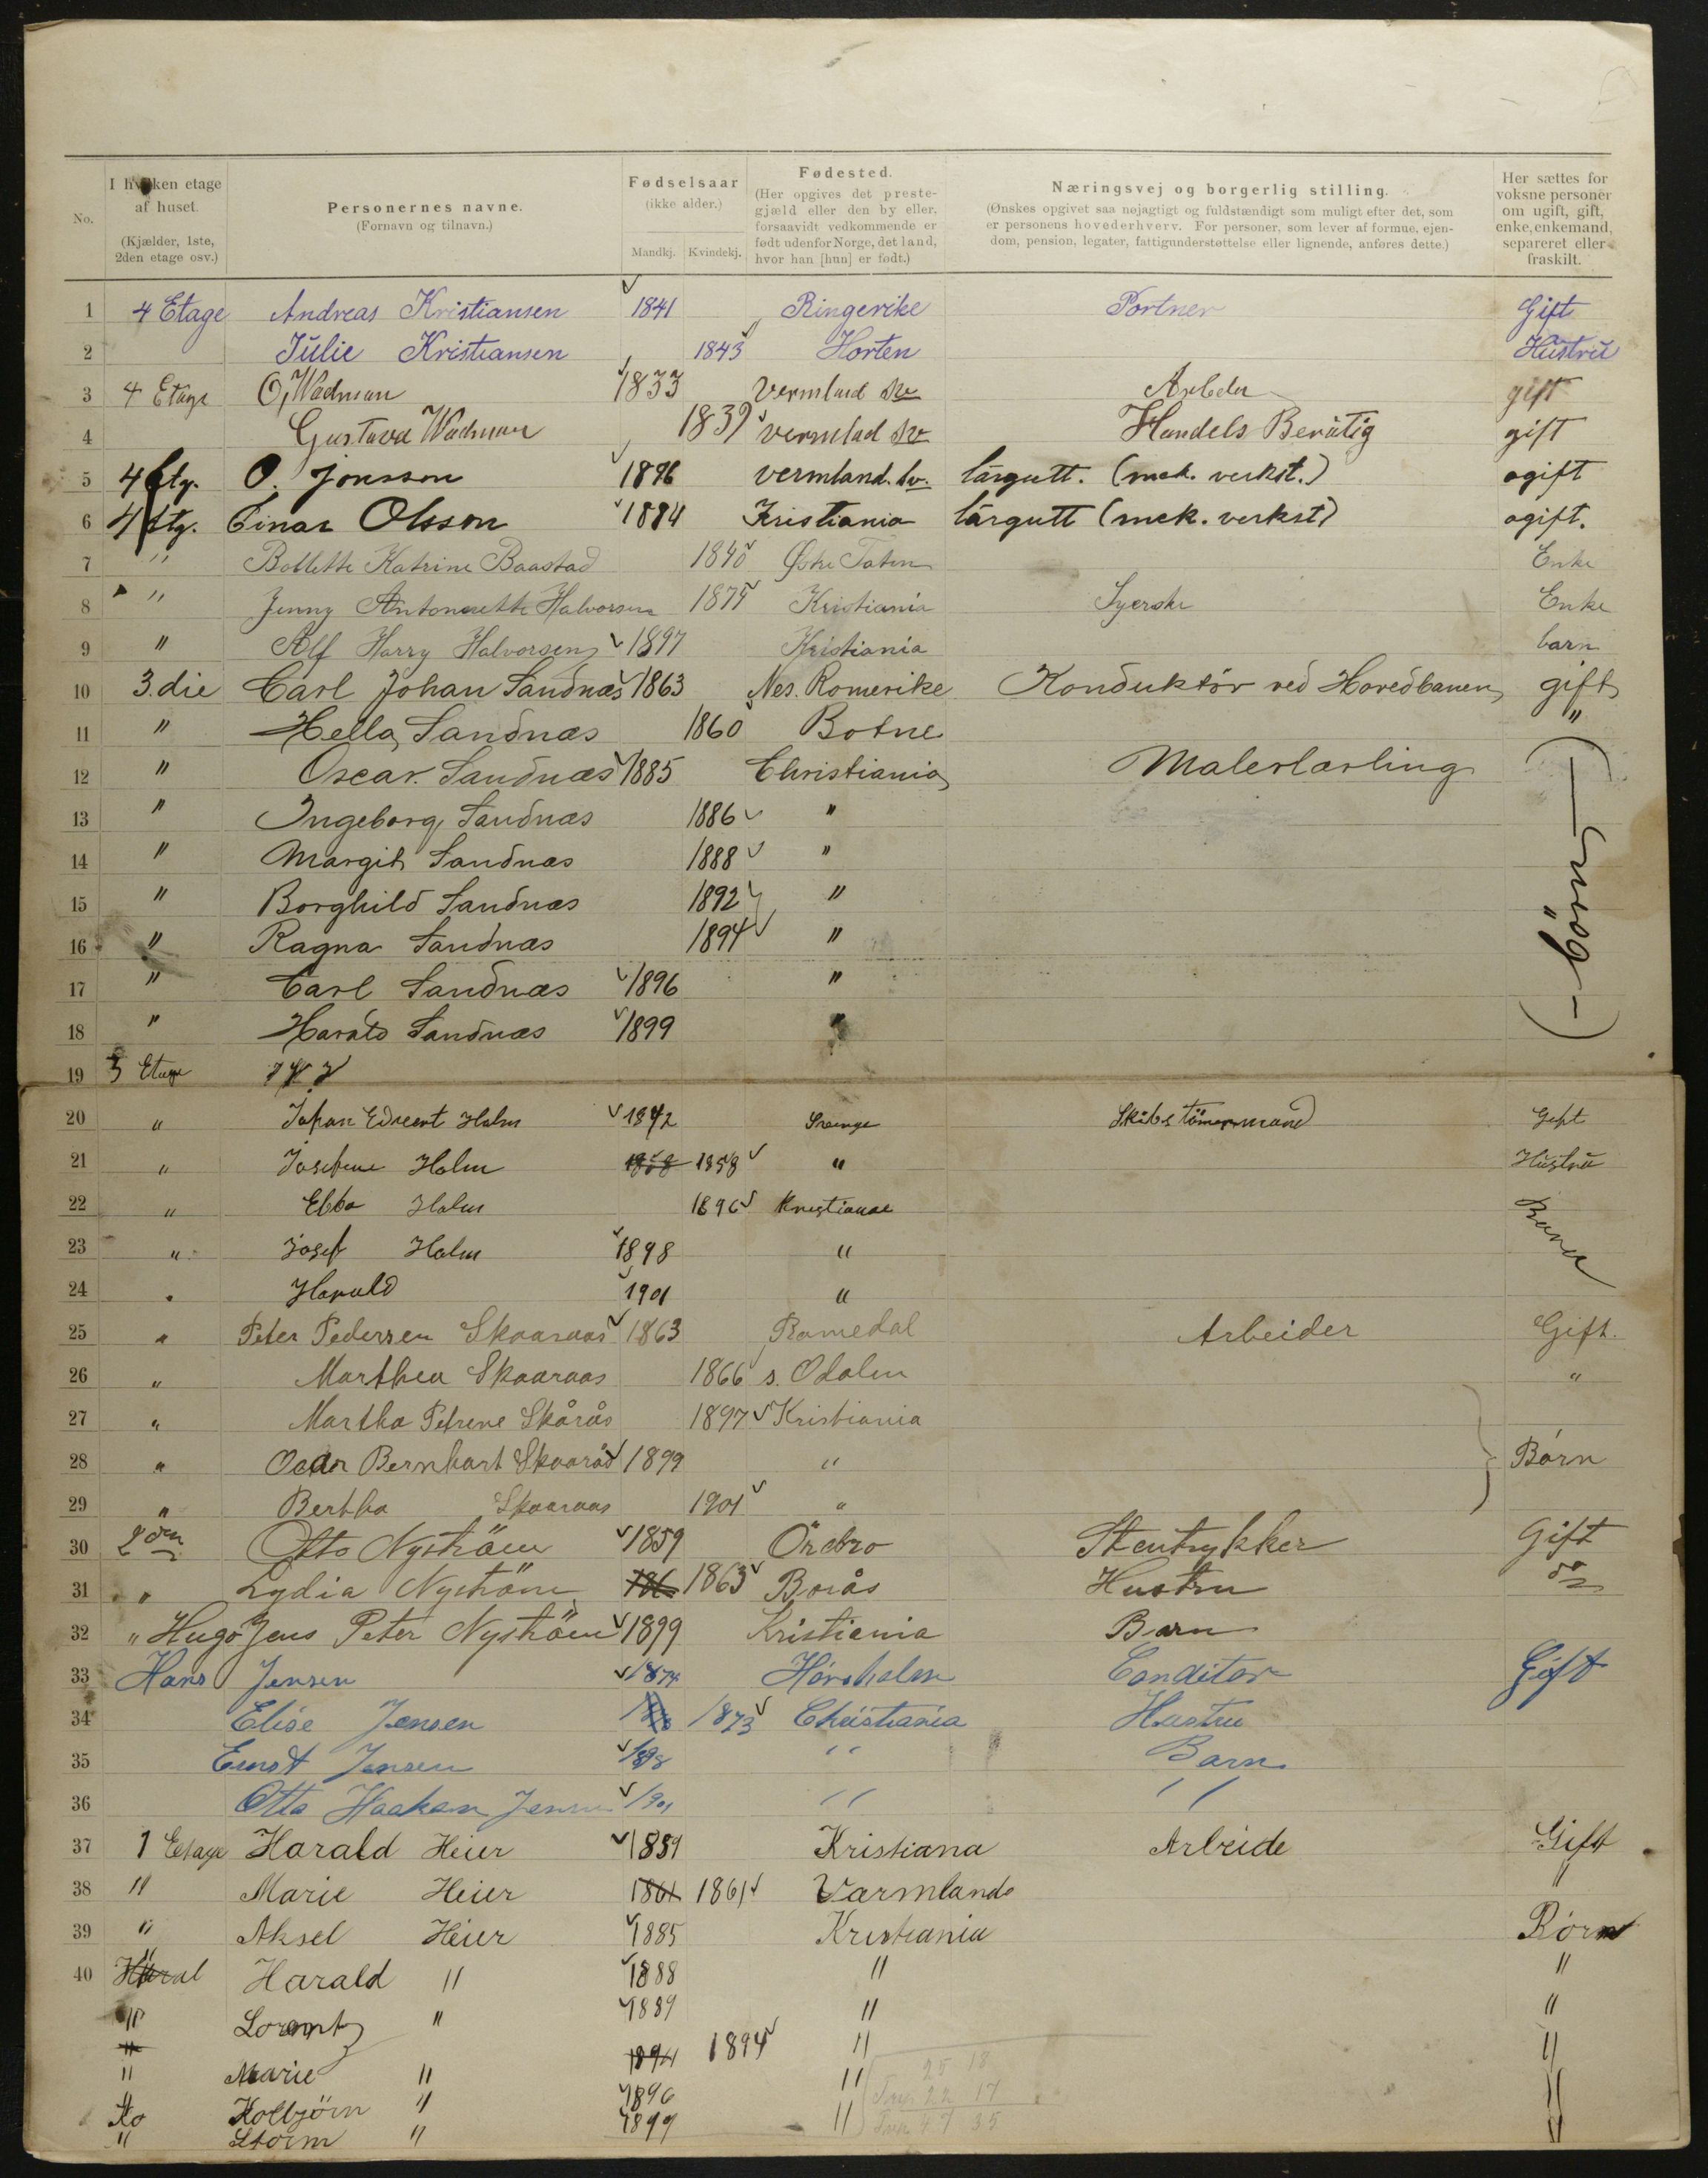 No.
I hvilken etage af huset. (Kjælder, 1ste, 2den etage osv.)
Personernes navne. (Fornavn og tilnavn.)
Fødselsaar (ikke alder.) Mandkj. Kvindekj.
Fødested. (Her opgives det prestegjæld eller den by eller, forsaavidt vedkommende er født udenfor Norge, det land, hvor han [hun] er født.)
Næringsvej og borgerlig stilling. (Ønskes opgivet saa nøjagtigt og fuldstændigt som muligt efter det, som er personens hovederhverv. For personer, som lever af formue, ejendom, pension, legater, fattigunderstøttelse eller lignende, anføres dette.)
Her sættes for voksne personer om ugift, gift, enke, enkemand, separeret eller fraskilt.
1 4 Etage Andreas Kristiansen 1841 Ringerike Portner Gift
2 Julie Kristiansen 1843 Horten Hustru
3 4 Etage O, Wadman 1833 Vermland Sv gift
4 Gustava Wadman 1839 vermlad Sv Handels Berätig gift
5 4 Etg. O. Jonsson 1896 vermland. Sv. lärgutt. (mek. verkst.) ogift
6 4 Etg. Einar Olsson 1884 Kristiania lärgutt (mek. verkst) ogift.
7 " Bollette Katrine Baastad 1840 Østre Toten Enke
8 " Jenny Antonette Halvorsen 1875 Kristiania Syerske Enke
9 " Alf Harry Halvorsen 1897 Kristiania barn
10 3.die Carl Johan Sandnæs 1863 Nes. Romerike Konduktör ved Hovedbanen gift
11 " Hella Sandnæs 1860 Botne "
12 " Oscar. Sandnæs 1885 Christiania Malerlærling
13 " Ingeborg Sandnæs 1886 "
14 " Margit Sandnæs 1888 "
15 " Borghild Sandnæs 1892 " (- börn -)
16 " Ragna Sandnæs 1894 "
17 " Carl Sandnæs 1896 "
18 " Harald Sandnæs 1899 "
19 3 Etage
20 " Johan Edvert Holm 1842 Sverige Skibstömermand Gift
21 " Josefine Holm 1858 1858 " Hustru
22 " Ebba Holm 1896 Kristiania
23 " Josef Holm 1898 "
24 " Harald 1901 "
25 " Peter Pedersen Skaaraas 1863 Romedal Arbeider Gift.
26 " Marthea Skaaraas 1866 s. Odalen "
27 " Martha Petrene Skårås 1897 Kristiania
28 " Oskar Bernhart Skaarås 1899 " Børn
29 " Bertha Skaaraas 1901 "
30 2den Otto Nyström 1859 Örebro Stentrykker Gift
31 " Lydia Nyström 186 1863 Borås Hustru do
32 " Hugo Jens Peter Nyström 1899 Kristiania Barn
33 Hans Jensen 1874 Hørsholm Conditor Gift
34 Elise Jensen 1873 Christiania Hustru
35 Ernst Jensen 1898 " Barn
36 Otto Haakon Jensen 1901 " "
37 1 Etage Harald Heier 1859 Kristiana Arbeide Gift
38 " Marie Heier 1861 1861 Varmlands "
39 " Aksel Heier 1885 Kristiania Børn
40 Haral Harald " 1888 " "
" Lorentz " 1889 " "
" Marie " 1894 1894 " "
Ko Kolbjörn " 1896 "
" Storm " 1899 "
25 18
22 17
47 35